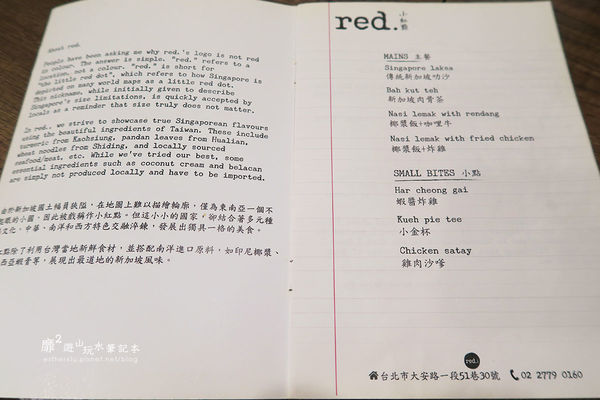 About red.
People have been asking me why red.'s logo is not red
in colour. The answer is simple. "red." refers to a
location, not a colour. "red." is short for
"the little red dot", which refers to how Singapore is
depicted on many world maps as a little red dot.
This nickname, while initially given to describe
Singapore's size limitations, is quickly accepted by
locals as a reminder that size truly does not matter.
In red., we strive to showcase true Singaporean flavours
using the beautiful ingredients of Taiwan. These include
turmeric from Kaohsiung, pandan leaves from Hualian,
wheat noodles from Shiding, and locally sourced
seafood/meat, etc. While we've tried our best, some
essential ingredients such as coconut cream and belacan
are simply not produced locally and have to be imported.
由於新加坡國土幅員狹隘，在地圖上難以描繪輪廓，僅為東南亞一個不
起眼的小國，因此被戲稱作小紅點。但這小小的國家，卻結合著多元種
族文化、中華、南洋和西方特色交融淬鍊，發展出獨具一格的美食。
紅點除了利用台灣當地新鮮食材，並搭配南洋進口原料，如印尼椰漿、
馬來西亞蝦膏等，展現出最道地的新加坡風味。
red. 小紅點
MAINS 主餐
Singapore laksa
傳統新加坡叻沙
Bah kut teh
新加坡肉骨茶
Nasi lemak with rendang
椰漿飯+咖哩牛
Nasi lemak with fried chicken
椰漿飯+炸雞
SMALL BITES 小點
Har cheong gai
蝦醬炸雞
Kueh pie tee
小金杯
Chicken satay
雞肉沙嗲
red.
台北市大安路一段51巷30號 02 2779 0160
靡2遊山玩水筆記本
estherslu.pixnet.net/blog